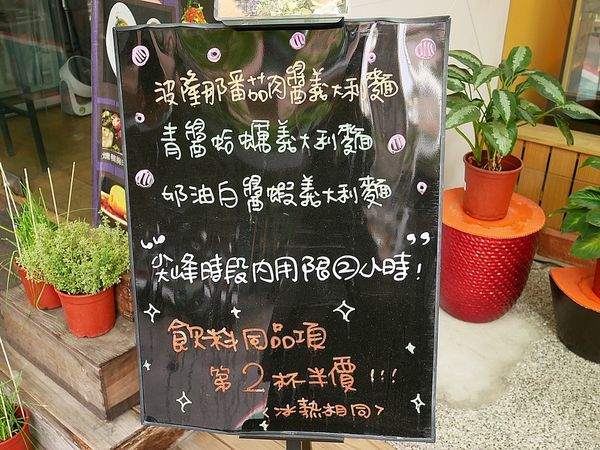 波隆那番茄肉醬義大利麵
青醬蛤蠣義大利麵
奶油白醬蝦義大利麵
“尖峰時段內用限②小時!”
飲料同品項
第2杯半價!!!
<冰熱相同>